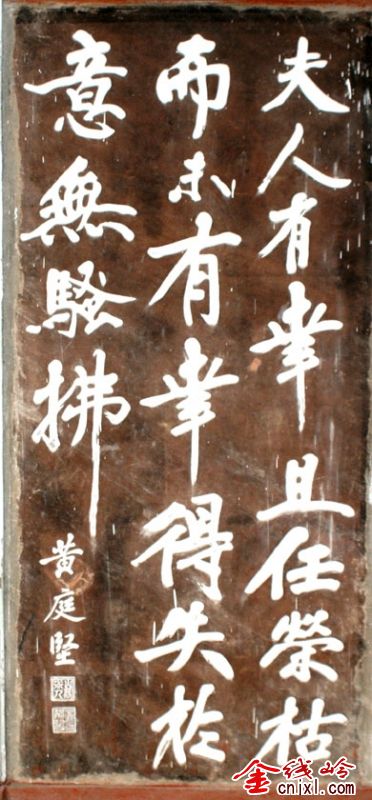 夫人有幸且任榮枯
而未有幸得失於
意無騷拂
黄庭坚
金线岭
cnjxl.com